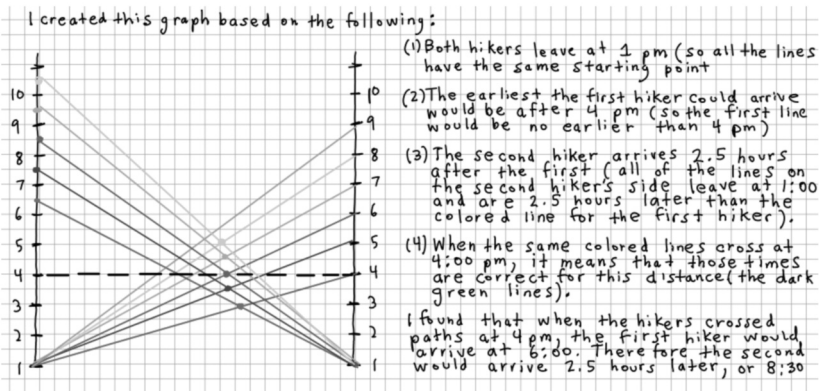 I created this graph based on the following:
(1) Both hikers leave at 1 pm (so all the lines
have the same starting point
(2) The earliest the first hiker could arrive
would be after 4 pm (so the first line
would be no earlier than 4 pm)
(3) The second hiker arrives 2.5 hours
after the first (all of the lines on
the second hiker's side leave at 1:00
and are 2.5 hours later than the
colored line for the first hiker).
(4) When the same colored lines cross at
4:00 pm, it means that those times
are correct for this distance (the dark
green lines).
I found that when the hikers crossed
paths at 4 pm, the first hiker would
arrive at 6:00. Therefore the second
would arrive 2.5 hours later, or 8:30
10
9
8
7
6
5
4
3
2
1
10
9
8
7
6
5
4
3
2
1